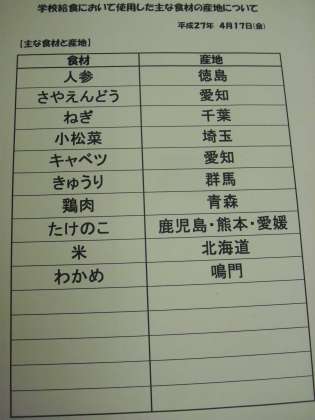 学校給食において使用した主な食材の産地について
平成27年 4月17日(金)
【主な食材と産地】
食材 産地
人参 徳島
さやえんどう 愛知
ねぎ 千葉
小松菜 埼玉
キャベツ 愛知
きゅうり 群馬
鶏肉 青森
たけのこ 鹿児島・熊本・愛媛
米 北海道
わかめ 鳴門